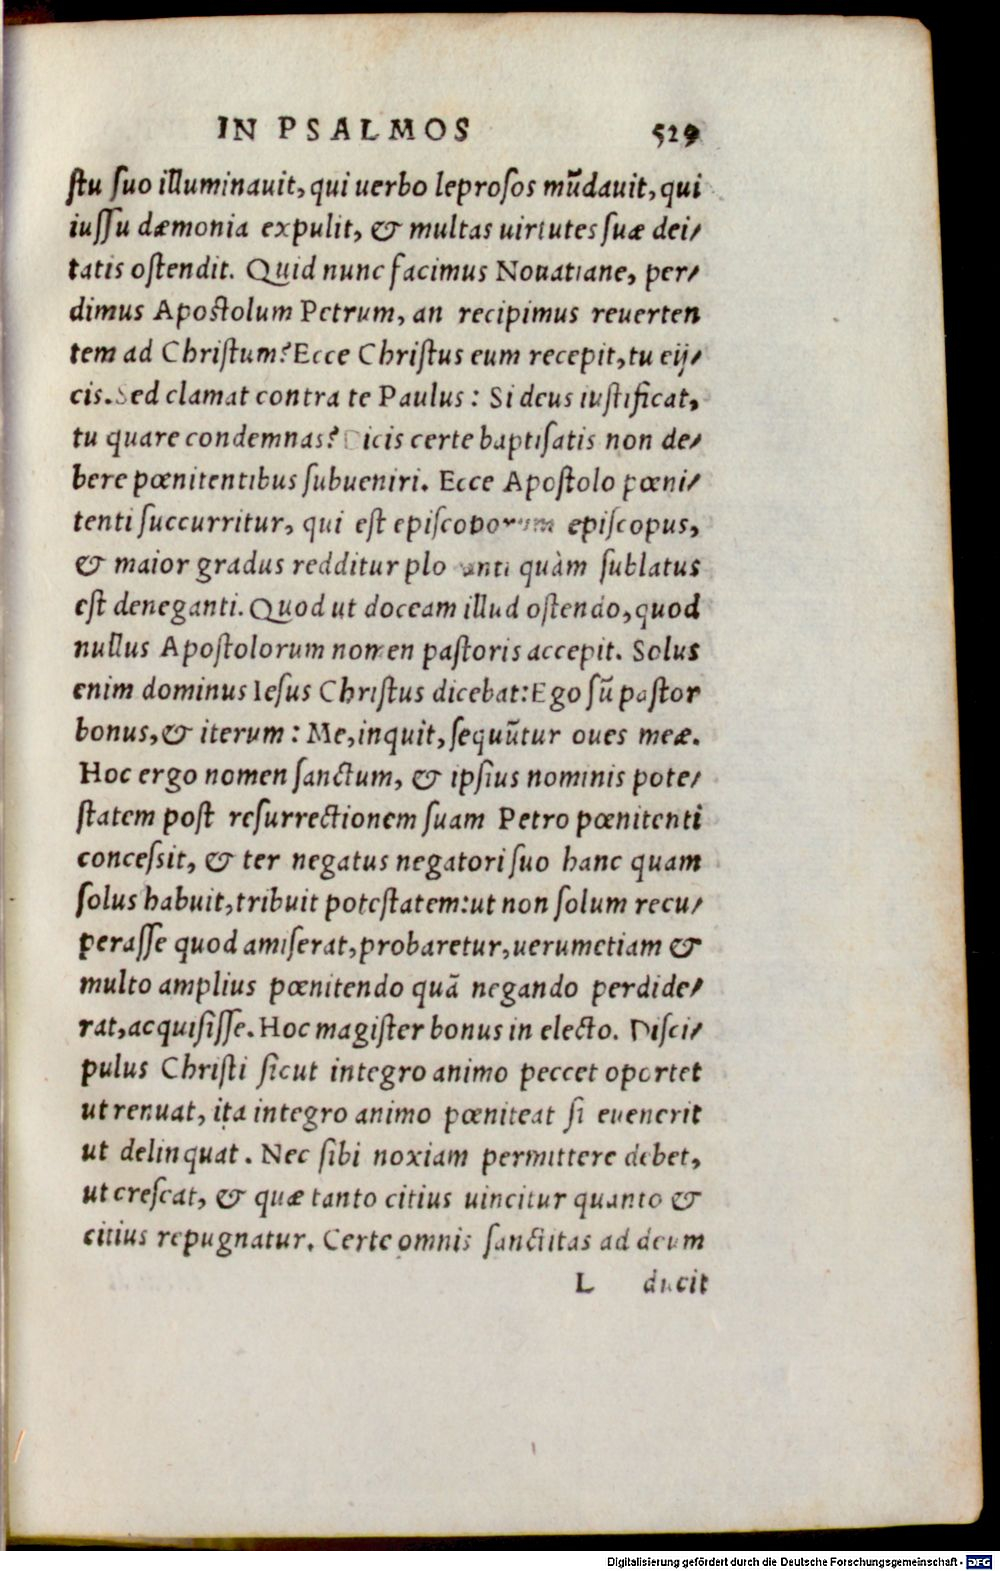 IN PSALMOS 529
ſtu ſuo illuminauit, qui uerbo leproſos mūdauit, qui
iuſſu dæmonia expulit, & multas uirtutes ſuæ dei/
tatis oſtendit. Quid nunc facimus Nouatiane, per/
dimus Apoſtolum Petrum, an recipimus reuerten
tem ad Chriſtum? Ecce Chriſtus eum recepit, tu eij/
cis. Sed clamat contra te Paulus: Si deus iuſtificat,
tu quare condemnas? Dicis certe baptiſatis non de/
bere pœnitentibus ſubueniri. Ecce Apoſtolo pœni/
tenti ſuccurritur, qui eſt epiſcoporum epiſcopus,
& maior gradus redditur plo anti quàm ſublatus
eſt deneganti. Quod ut doceam illud oſtendo, quod
nullus Apoſtolorum nomen paſtoris accepit. Solus
enim dominus Ieſus Chriſtus dicebat: Ego sū paſtor
bonus, & iterum: Me, inquit, ſequūtur oues meæ.
Hoc ergo nomen ſanctum, & ipſius nominis pote/
ſtatem poſt reſurrectionem ſuam Petro pœnitenti
conceſsit, & ter negatus negatori ſuo hanc quam
ſolus habuit, tribuit poteſtatem: ut non ſolum recu/
peraſſe quod amiſerat, probaretur, uerumetiam &
multo amplius pœnitendo quā negando perdide/
rat, acquiſiſſe. Hoc magiſter bonus in electo. Diſci/
pulus Chriſti ſicut integro animo peccet oportet
ut renuat, ita integro animo pœniteat ſi euenerit
ut delinquat. Nec ſibi noxiam permittere debet,
ut creſcat, & quæ tanto citius uincitur quanto &
citius repugnatur. Certe omnis ſanctitas ad deum
L ducit
Digitalisierung gefördert durch die Deutsche Forschungsgemeinschaft - DFG